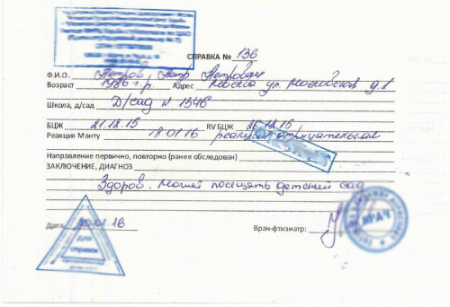 СПРАВКА № 136
Ф.И.О. Петров Петр Петрович
Возраст 1986 г.р. Адрес Москва ул. Московская д.1
Школа, д/сад Д/сад № 1346
БЦЖ 21.12.15 RV БЦЖ 21.12.15
Реакция Манту 18.01.16 реакция отрицательная
Направление первично, повторно (ранее обследован)
ЗАКЛЮЧЕНИЕ, ДИАГНОЗ
Здоров. Может посещать детский сад
Дата 20.01.16 Врач-фтизиатр:
Для справок
ВРАЧ